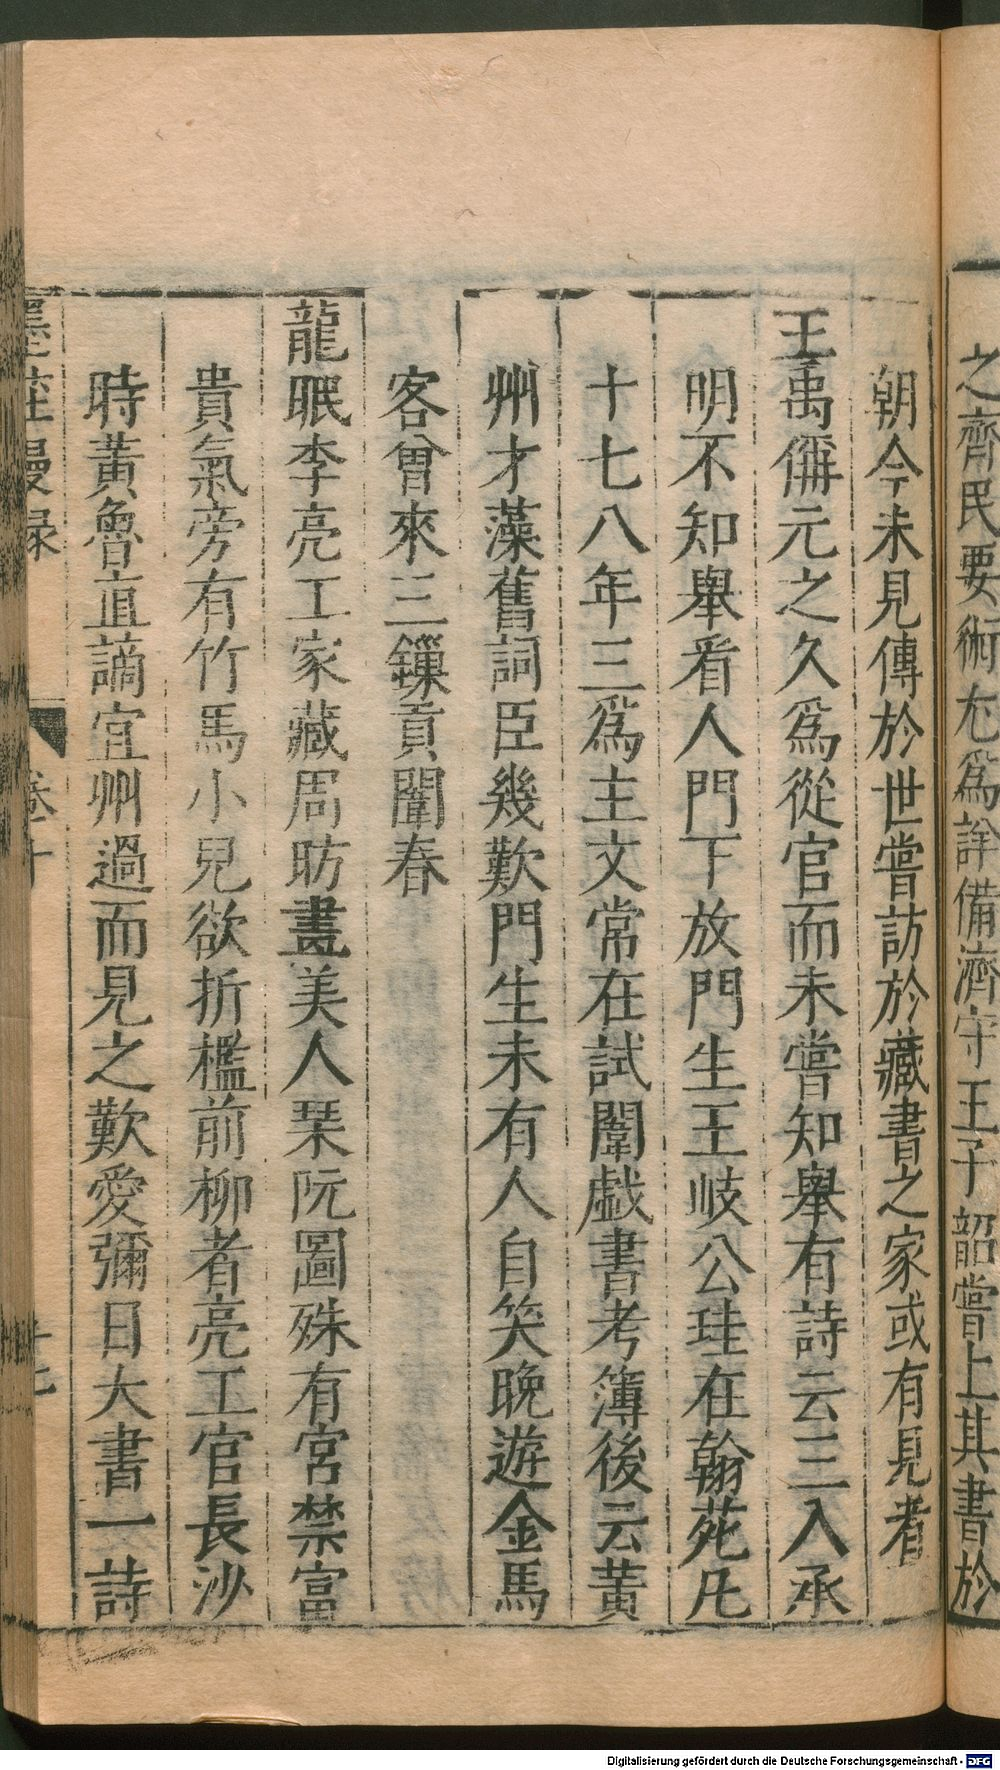 之齊民要術尤爲詳備濟守王子韶嘗上其書於
朝今未見傳於世嘗訪於藏書之家或有見者
王禹偁元之久爲從官而未嘗知舉有詩云三入承
明不知舉看人門下放門生王岐公珪在翰苑凡
十七八年三爲主文常在試闈戱書考簿後云黃
州才藻舊詞臣幾歎門生未有人自笑晚遊金馬
客曾來三鏁貢闈春
龍眠李亮工家藏周昉畫美人琹阮圖殊有宮禁富
貴氣旁有竹馬小兒欲折檻前柳者亮工官長沙
時黃魯直謫宜州過而見之歎愛彌日大書一詩
墨莊漫錄 卷十 十七
Digitalisierung gefördert durch die Deutsche Forschungsgemeinschaft - DFG